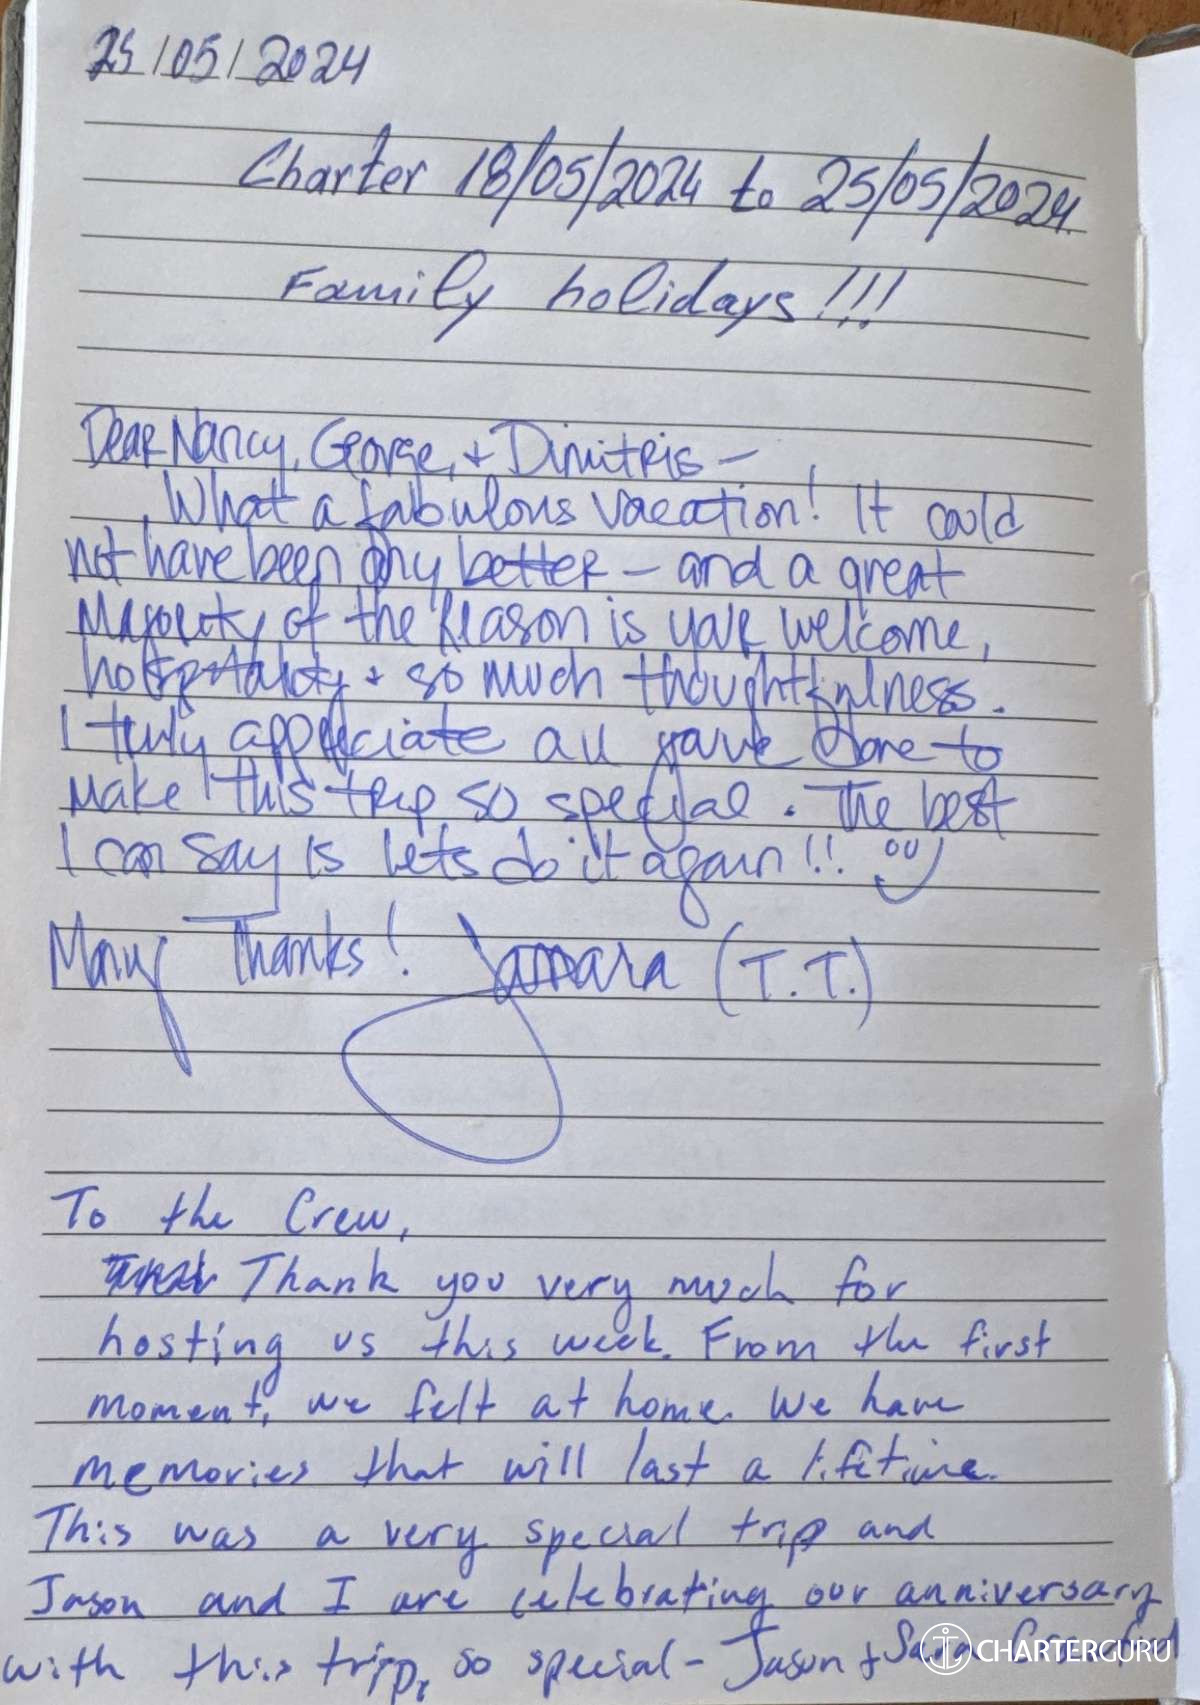 25/05/2024
Charter 18/05/2024 to 25/05/2024.
Family holidays!!!
Dear Nancy, George, + Dimitris –
What a fabulous vacation! It could
not have been any better – and a great
majority of the reason is your welcome,
hospitality + so much thoughtfulness.
I truly appreciate all you've done to
make this trip so special. The best
I can say is lets do it again!! 
Many Thanks! Tamara (T.T.)
To the Crew,
Thank you very much for
hosting us this week. From the first
moment, we felt at home. We have
memories that will last a lifetime.
This was a very special trip and
Jason and I are celebrating our anniversary
with this trip, so special – Jason +
CHARTERGURU